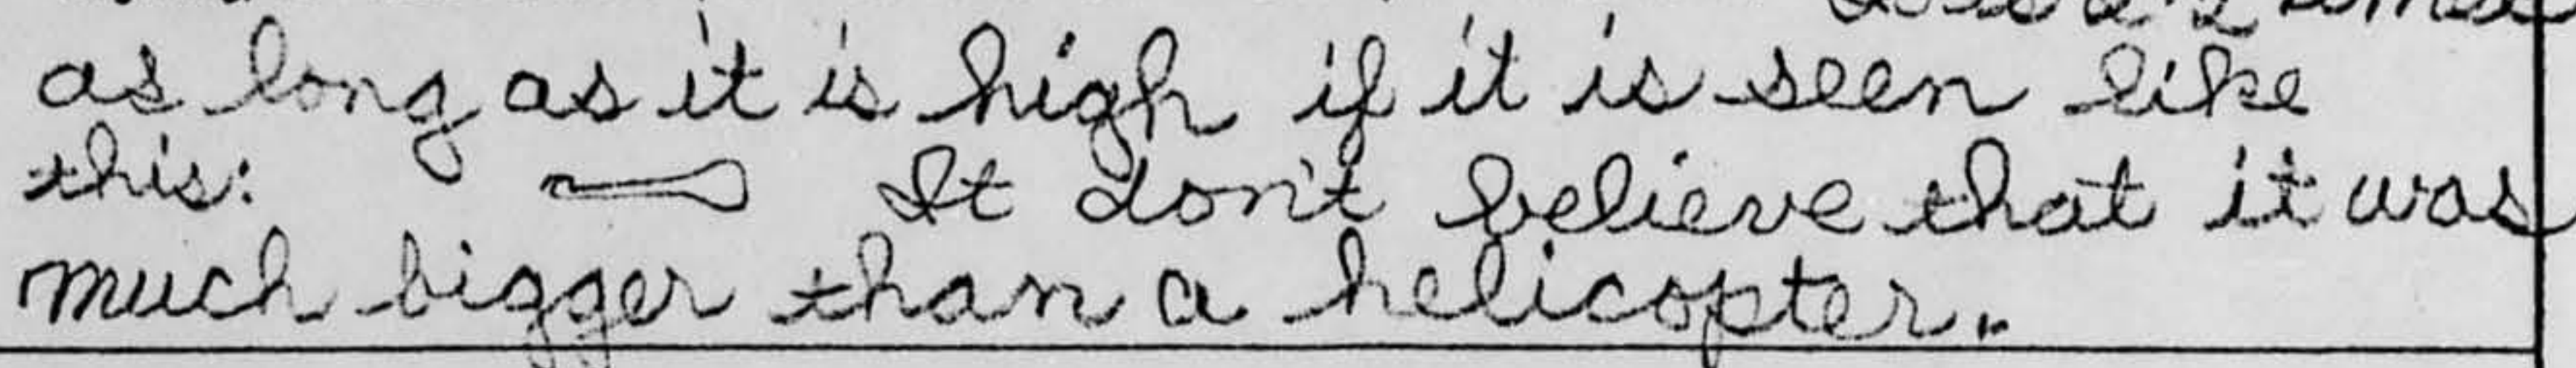 as long as it is high if it is seen like
this: It don't believe that it was
much bigger than a helicopter.